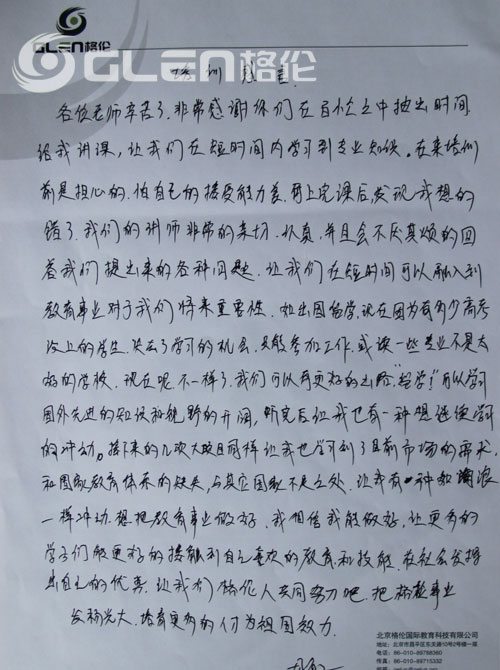 GLEN格伦
GLEN格伦
培训
各位老师辛苦了,非常感谢你们在百忙之中抽出时间
给我讲课,让我们在短时间内学习到专业知识。在来培训
前是担心的,怕自己的接受能力差,再上完课后,发现我想的
错了,我们的讲师非常的亲切,认真,并且会不厌其烦的回
答我们提出来的各种问题,让我们在短时间可以融入到
教育事业对于我们将来重要性。如出国留学,现在因为有多少高考
以上的学生,失去了学习的机会,只能参加工作,或读一些专业不是太
好的学校,现在呢,不一样了,我们可以有更好的出路,"留学!"可以学习
国外先进的知识和视野的开阔,听完后让我也有一种想继续学习
的冲动。接下来的几次大项目同样让我也学习到了目前市场的需求,
和国家教育体系的缺失,与其它国家不足之处,让我有一种和浪
一样冲动,想把教育事业做好,我相信我能做好,让更多的
学子们能更好的接触到自己喜欢的教育和技能,在社会发挥
出自己的优秀,让我们格伦人共同努力吧,把格伦事业
发扬光大,培育更多的付为祖国努力.
北京格伦国际教育科技有限公司
地址:北京市昌平区东关路10号2号楼一层
电话:86-010-89788360
86-010-89715332